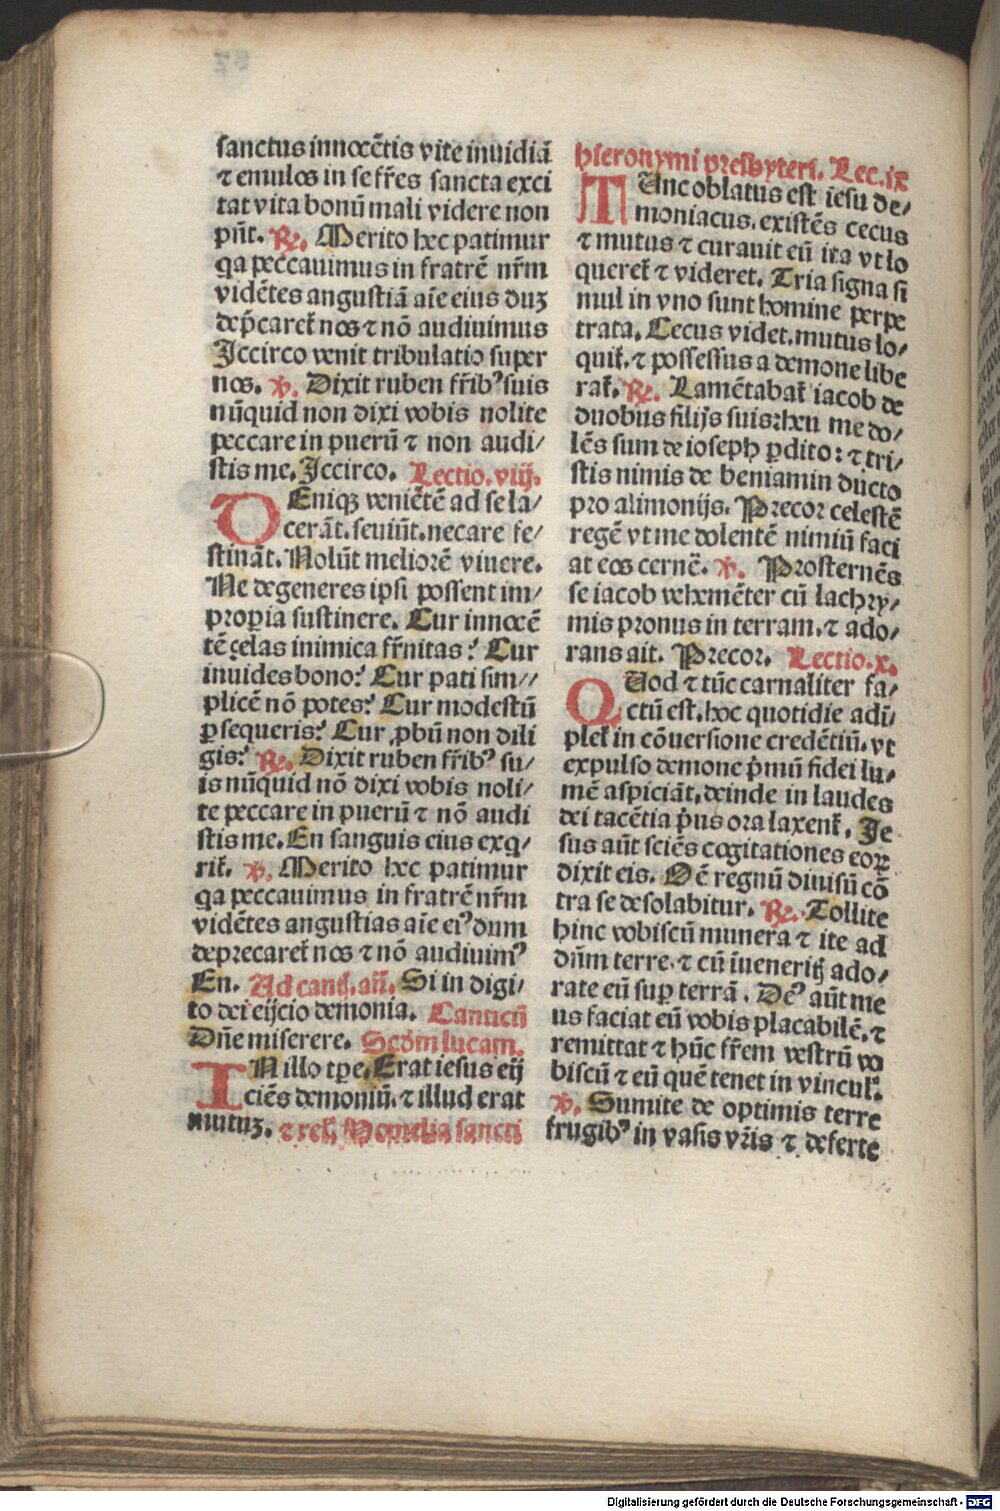 sanctus innocẽtis vite inuidiã
⁊ emulos in se fr̃es sancta exci
tat vita bonũ mali videre non
pñt. ℟. Merito hec patimur
qa peccauimus in fratrẽ nr̃m
vidẽtes angustiã aĩe eius duꝫ
dep̃caret᷑ nos ⁊ nõ audiuimus
Jccirco venit tribulatio super
nos. ℣. Dixit ruben fr̃ibꝰ suis
nũquid non dixi vobis nolite
peccare in puerũ ⁊ non audi/
stis me. Jccirco. Lectio.viij.
DEniqꝫ veniẽtẽ ad se la/
cerãt. seuiũt. necare fe/
stinãt. Nolũt meliorẽ viuere.
Ne degeneres ipsi possent im/
propria sustinere. Cur innocẽ
tẽ celas inimica fr̃nitas? Cur
inuides bono? Cur pati sim//
plicẽ nõ potes? Cur modestũ
ꝑsequeris? Cur ꝓbũ non dili
gis? ℟. Dixit ruben fr̃ibꝰ su/
is nũquid nõ dixi vobis noli/
te peccare in puerũ ⁊ nõ audi
stis me. En sanguis eius exq/
rit᷑. ℣. Merito hec patimur
qa peccauimus in fratrẽ nr̃m
vidẽtes angustias aĩe eiꝰ dum
deprecaret᷑ nos ⁊ nõ audiuimꝰ
En. Ad cantꝭ. añ. Si in digi/
to dei eijcio demonia. Canticũ
Dñe miserere. Scd̃m lucam.
IN illo tꝑe. Erat iesus eij
ciẽs demoniũ. ⁊ illud erat
mutuꝫ. ⁊ rel̃. Homelia sancti
hieronymi presbyteri. Lec.ix
TUnc oblatus est iesu de/
moniacus. existẽs cecus
⁊ mutus ⁊ curauit eũ ita vt lo
queret᷑ ⁊ videret. Tria signa si
mul in vno sunt homine perpe
trata. Cecus videt. mutus lo/
quit᷑. ⁊ possessus a demone libe
rat᷑. ℟. Lamẽtabat᷑ iacob de
duobus filijs suis: heu me do/
lẽs sum de ioseph ꝑdito: ⁊ tri/
stis nimis de beniamin ducto
pro alimonijs. Precor celestẽ
regẽ vt me dolentẽ nimiũ faci
at eos cernẽ. ℣. Prosternẽs
se iacob vehemẽter cũ lachry/
mis pronus in terram. ⁊ ado/
rans ait. Precor. Lectio.x.
QUod ⁊ tũc carnaliter fa/
ctũ est. hoc quotidie adĩ/
plet᷑ in cõuersione credẽtiũ. vt
expulso demone p̃mũ fidei lu/
mẽ aspiciãt. deinde in laudes
dei tacẽtia p̃us ora laxent᷑. Je
sus aũt sciẽs cogitationes eoꝝ
dixit eis. Oẽ regnũ diuisũ cõ
tra se desolabitur. ℟. Tollite
hinc vobiscũ munera ⁊ ite ad
dñm terre. ⁊ cũ iueneritꝭ ado/
rate eũ suꝑ terrã. Deꝰ aũt me
us faciat eũ vobis placabilẽ. ⁊
remittat ⁊ hũc fr̃em vestrũ vo
biscũ ⁊ eũ quẽ tenet in vinculꝭ.
℣. Sumite de optimis terre
frugibꝰ in vasis vr̃is ⁊ deferte
Digitalisierung gefördert durch die Deutsche Forschungsgemeinschaft - DFG